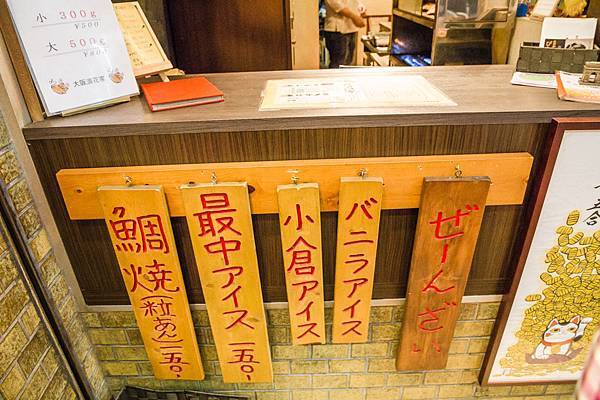 小 300g
¥500
大 500g
¥800
大阪浪花家
鯛焼(粒あん)一五〇-
最中アイス一五〇-
小倉アイス
バニラアイス
ぜーんざい